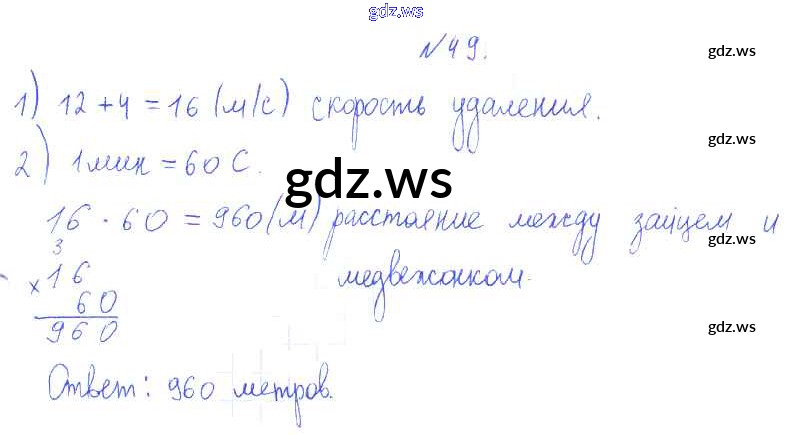 gdz.ws
№49.
gdz.ws
1) 12 + 4 = 16 (м/с) скорость удаления.
gdz.ws
2) 1 мин = 60 С.
gdz.ws
16 · 60 = 960 (м) расстояние между зайцем и
gdz.ws
3
× 16 медвежонком.
60
960
gdz.ws
Ответ: 960 метров.
gdz.ws